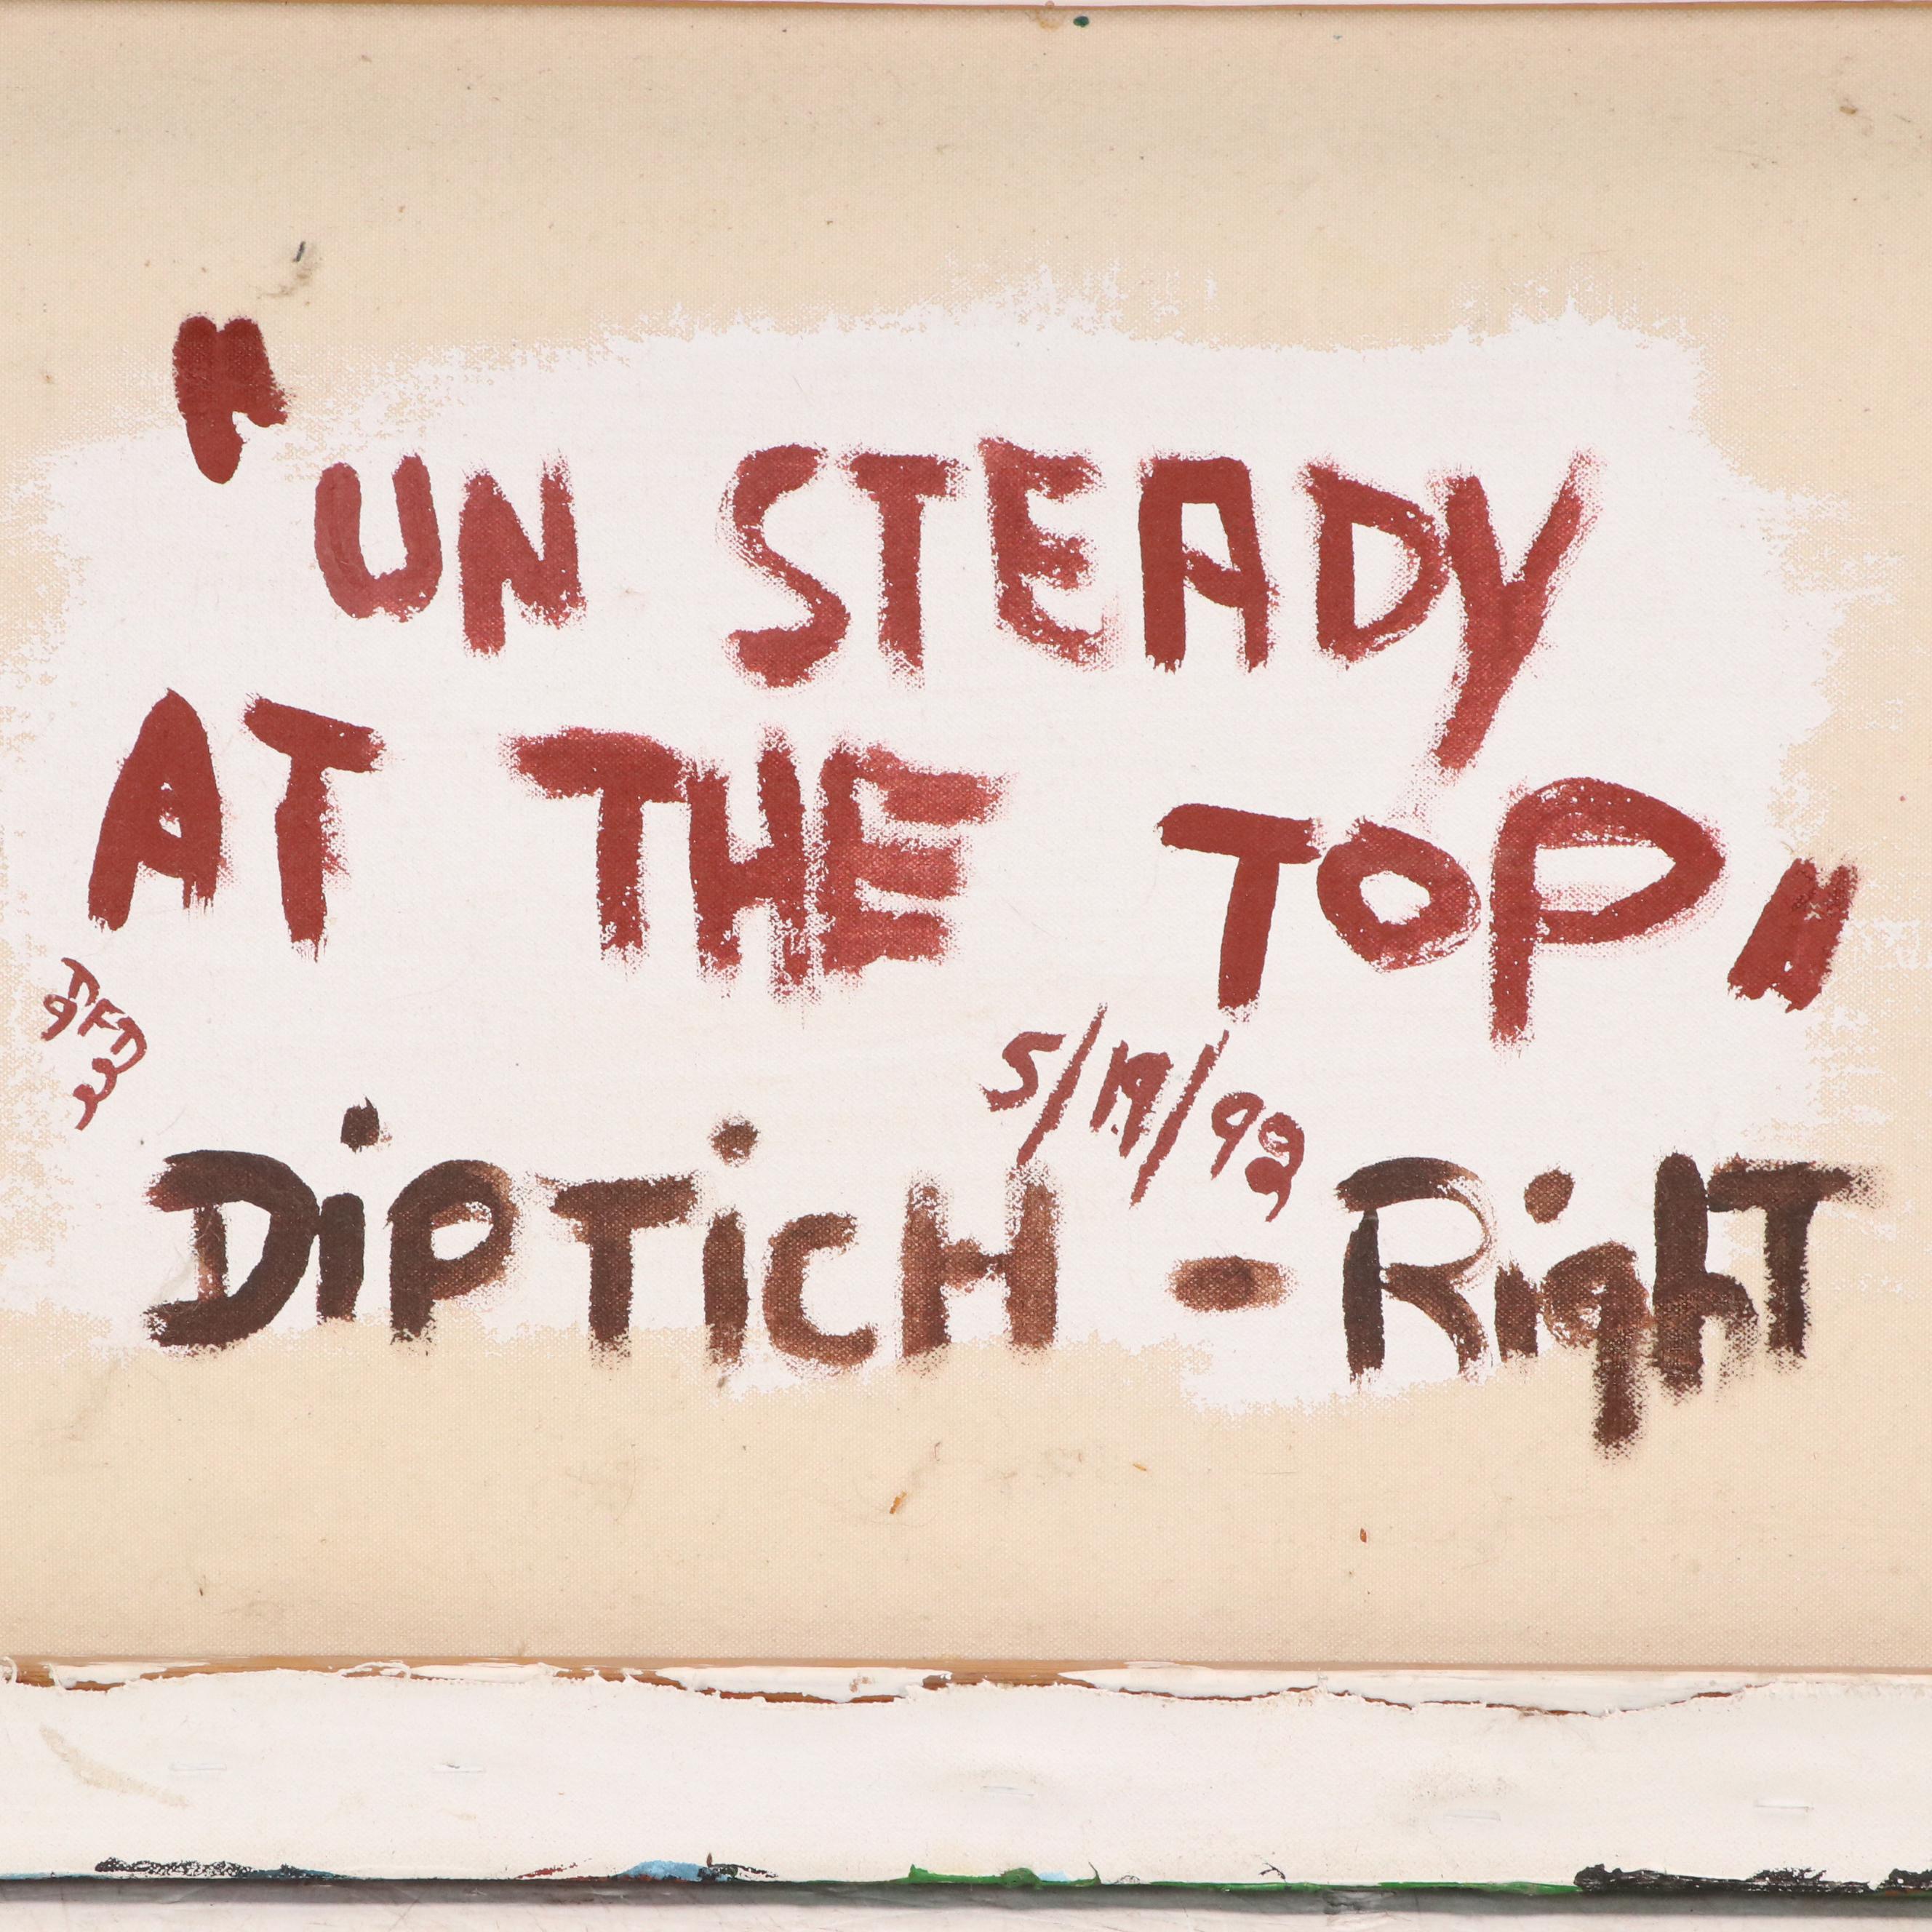 "UN STEADY
AT THE TOP"
5/19/92
DipTicH - RighT